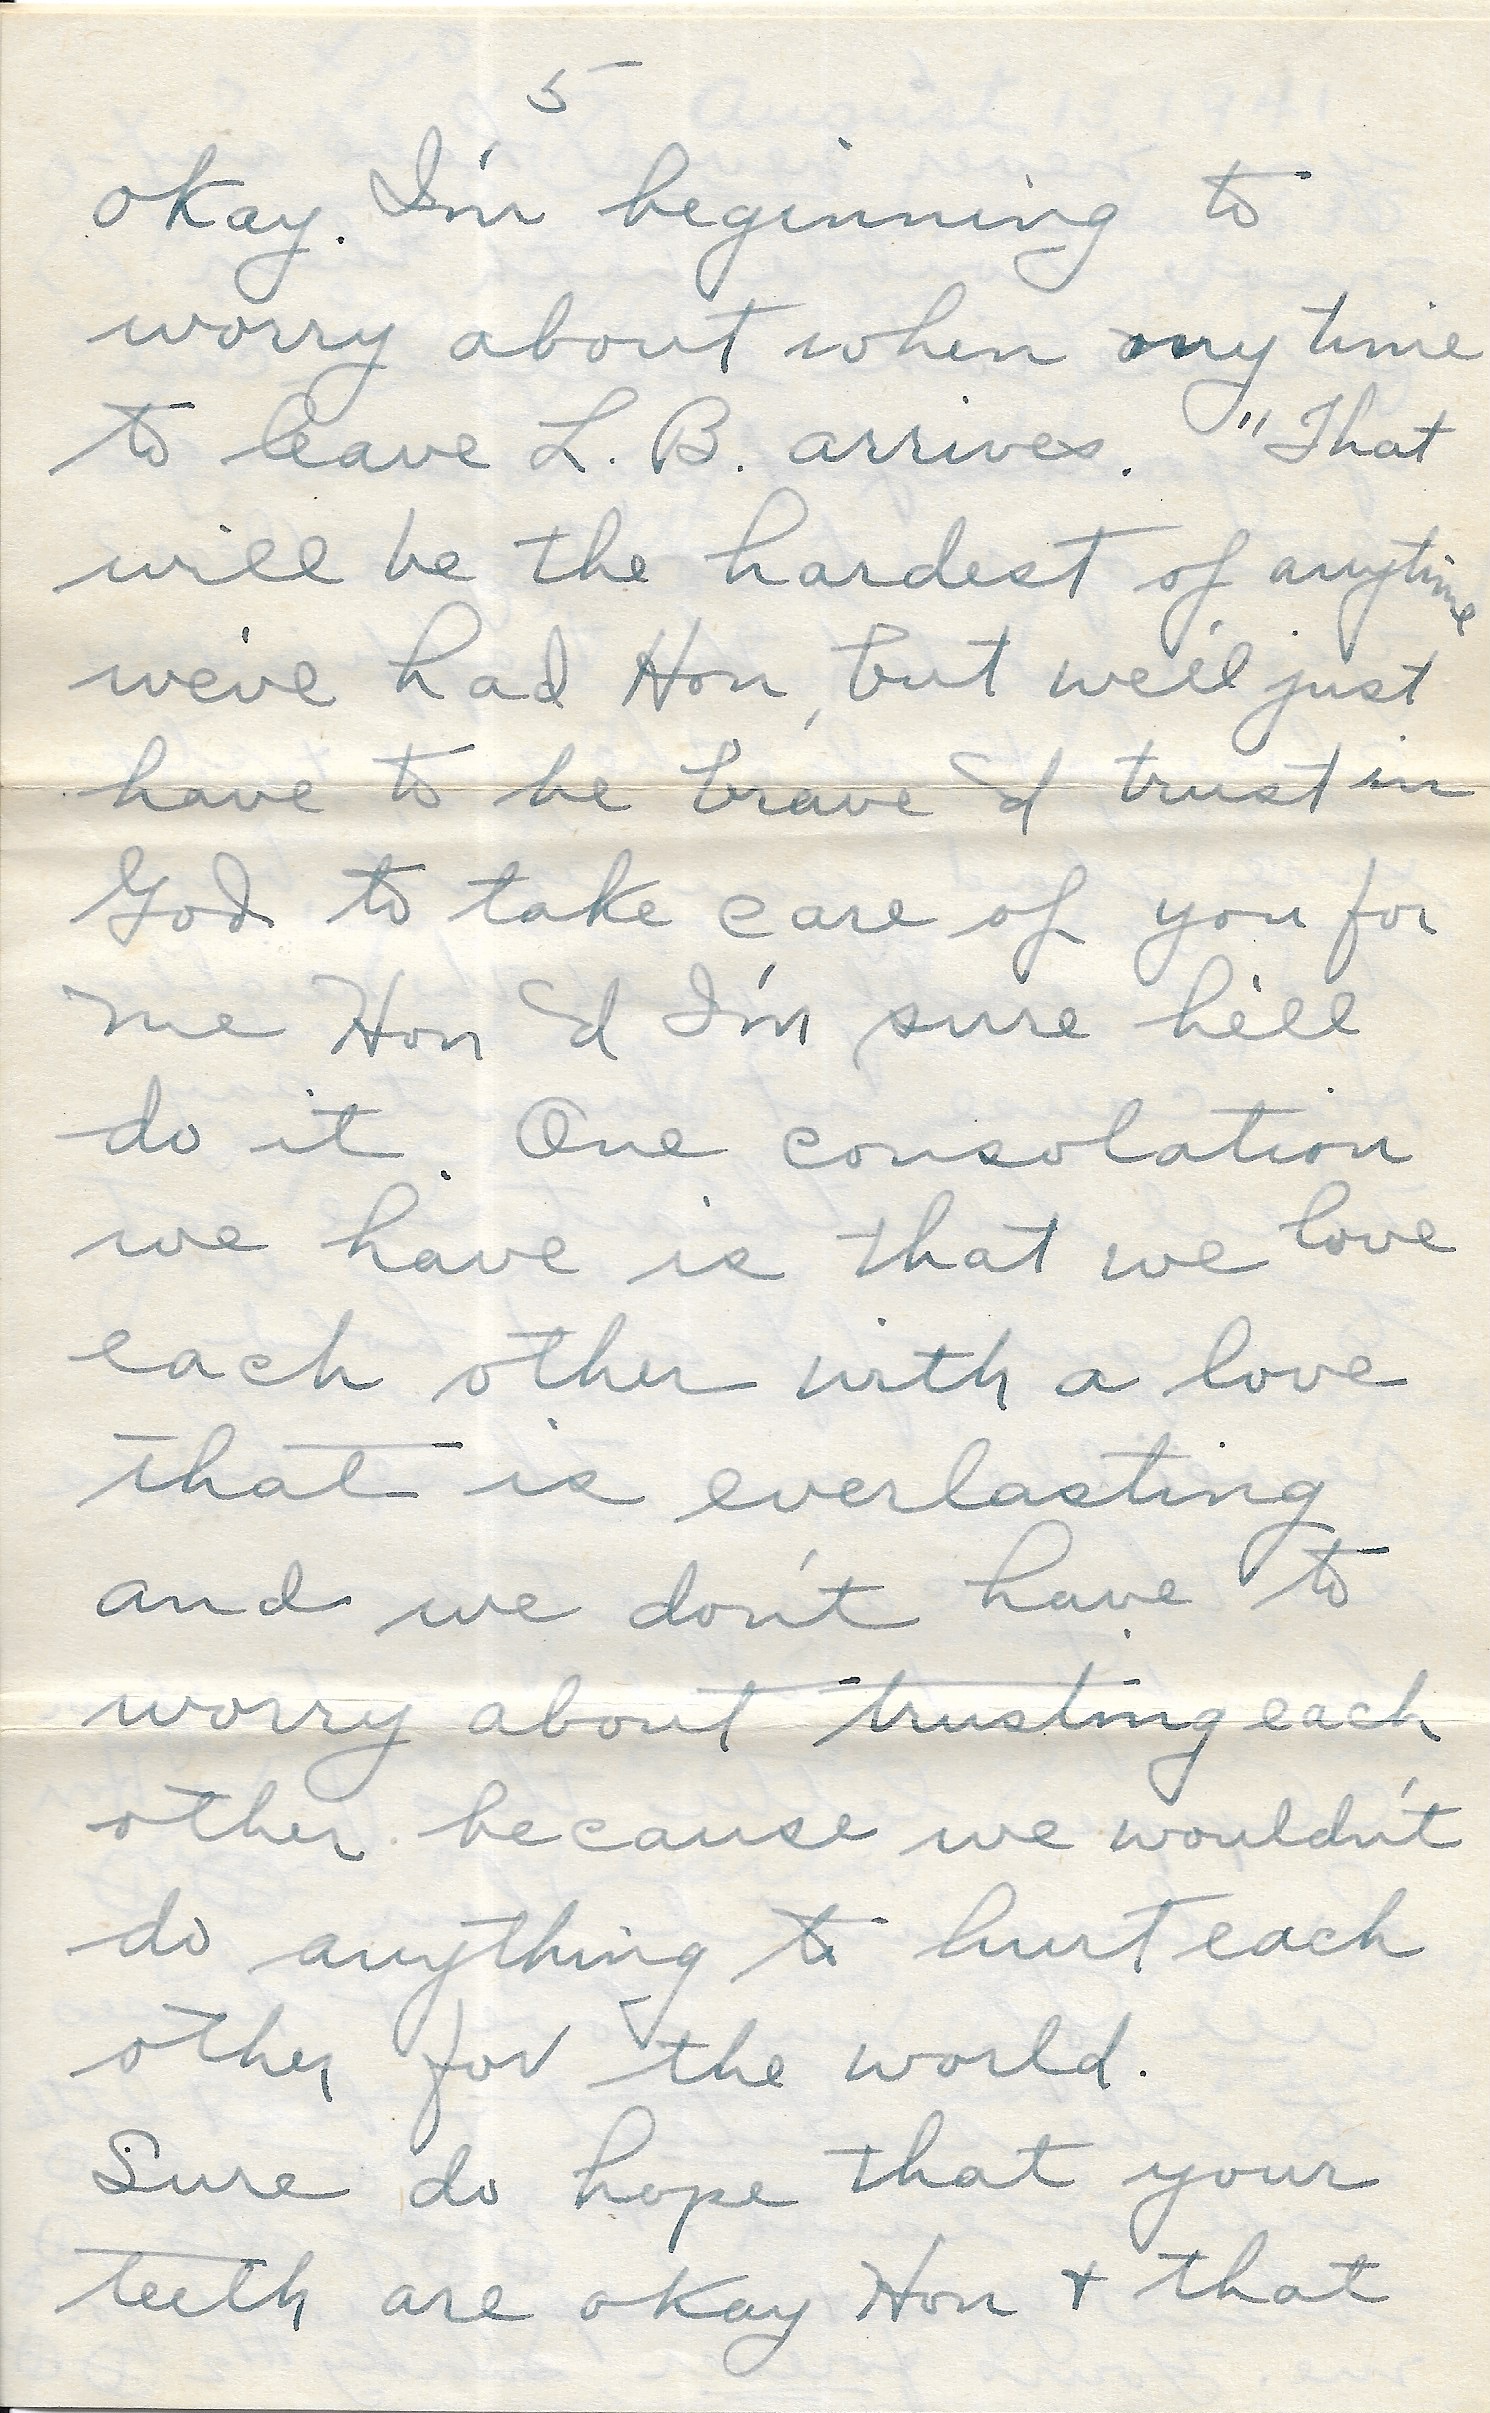 5
okay. I'm beginning to
worry about when my time
to leave L. B. arrives. "That
will be the hardest of anytime
we've had Hon, but we'll just
have to be brave & trust in
God to take care of you for
me Hon & I'm sure he'll
do it. One consolation
we have is that we love
each other with a love
that is everlasting
and we don't have to
worry about trusting each
other because we wouldn't
do anything to hurt each
other for the world.
Sure do hope that your
teeth are okay Hon + that